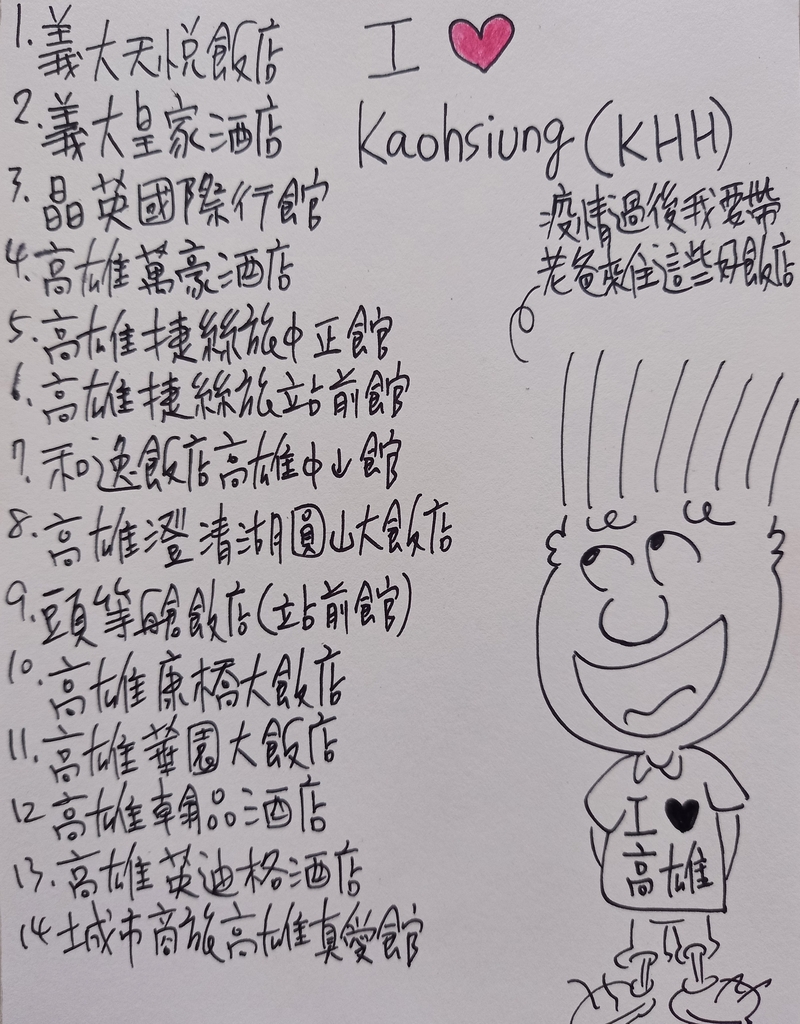 1.義大天悅飯店
2.義大皇家酒店
3.晶英國際行館
4.高雄萬豪酒店
5.高雄捷絲旅中正館
6.高雄捷絲旅站前館
7.和逸飯店高雄中山館
8.高雄澄清湖圓山大飯店
9.頭等艙飯店(站前館)
10.高雄康橋大飯店
11.高雄華園大飯店
12高雄翰品酒店
13.高雄英迪格酒店
14城市商旅高雄真愛館
I ♥
Kaohsiung(KHH)
疫情過後我要帶
老爸來住這些好飯店
I ♥
高雄